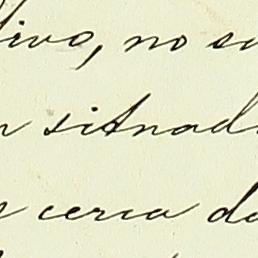 livo, no su
situad
cerca do